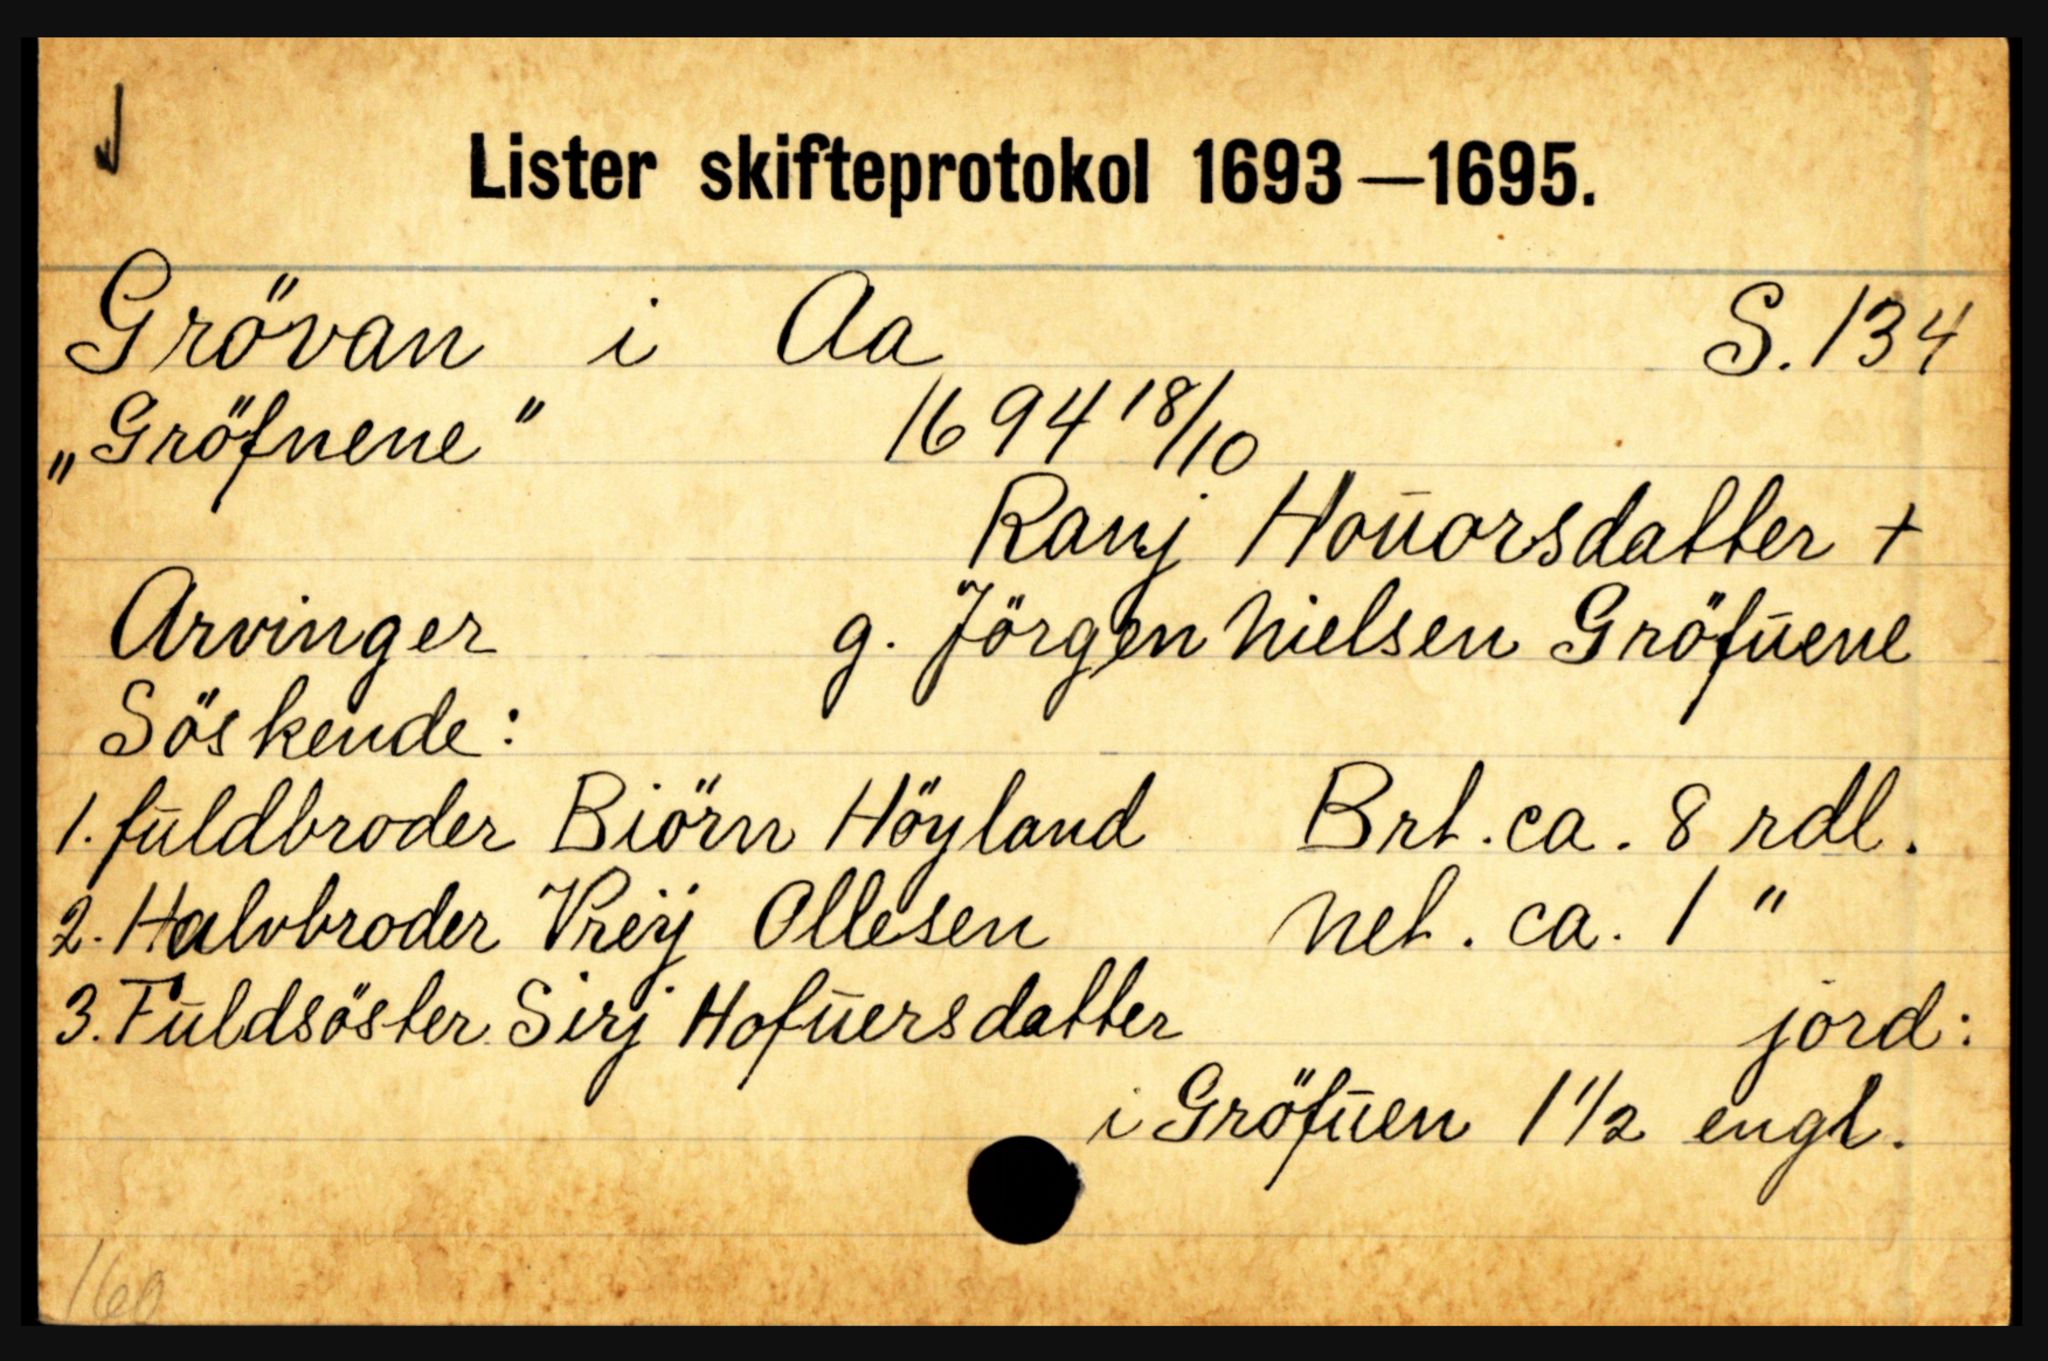 Lister skifteprotokol 1693—1695.
Grövan i Aa S. 134
„Gröfnene" 1694 18/10
Ranj Houorsdatter +
Arvinger g. Jörgen Nielsen Gröfuene
Söskende:
1. fuldbroder Biörn Höyland Brt. ca. 8 rdl.
2. Halvbroder Vreij Ollesen Net. ca. 1 "
3. Fuldsöster Sirj Hofuersdatter jord:
i Gröfuen 1 1/2 engl.
160